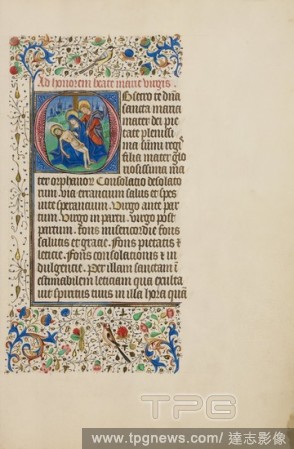 Ad honorem beate marie virginis.
bsecro te dña
sancta maria
mater dei pie
tate plenissi
ma sūmi regꝭ
filia mater glo
riosissima ma
ter orphanoꝝ Consolacio desolato
rum. via errancium salus et spes
inte sperancium. Virgo ante par
tum. Virgo in partu. virgo post
partum. Fons misericordie fons
salutis et gracie. Fons pietatis et
leticie. Fons consolationis et in
dulgencie. Per illam sanctam ī
estimabilem leticiam qua exulta
uit spiritus tuus in illa hora quā
TPG
www.tpgnews.com/ 達志影像